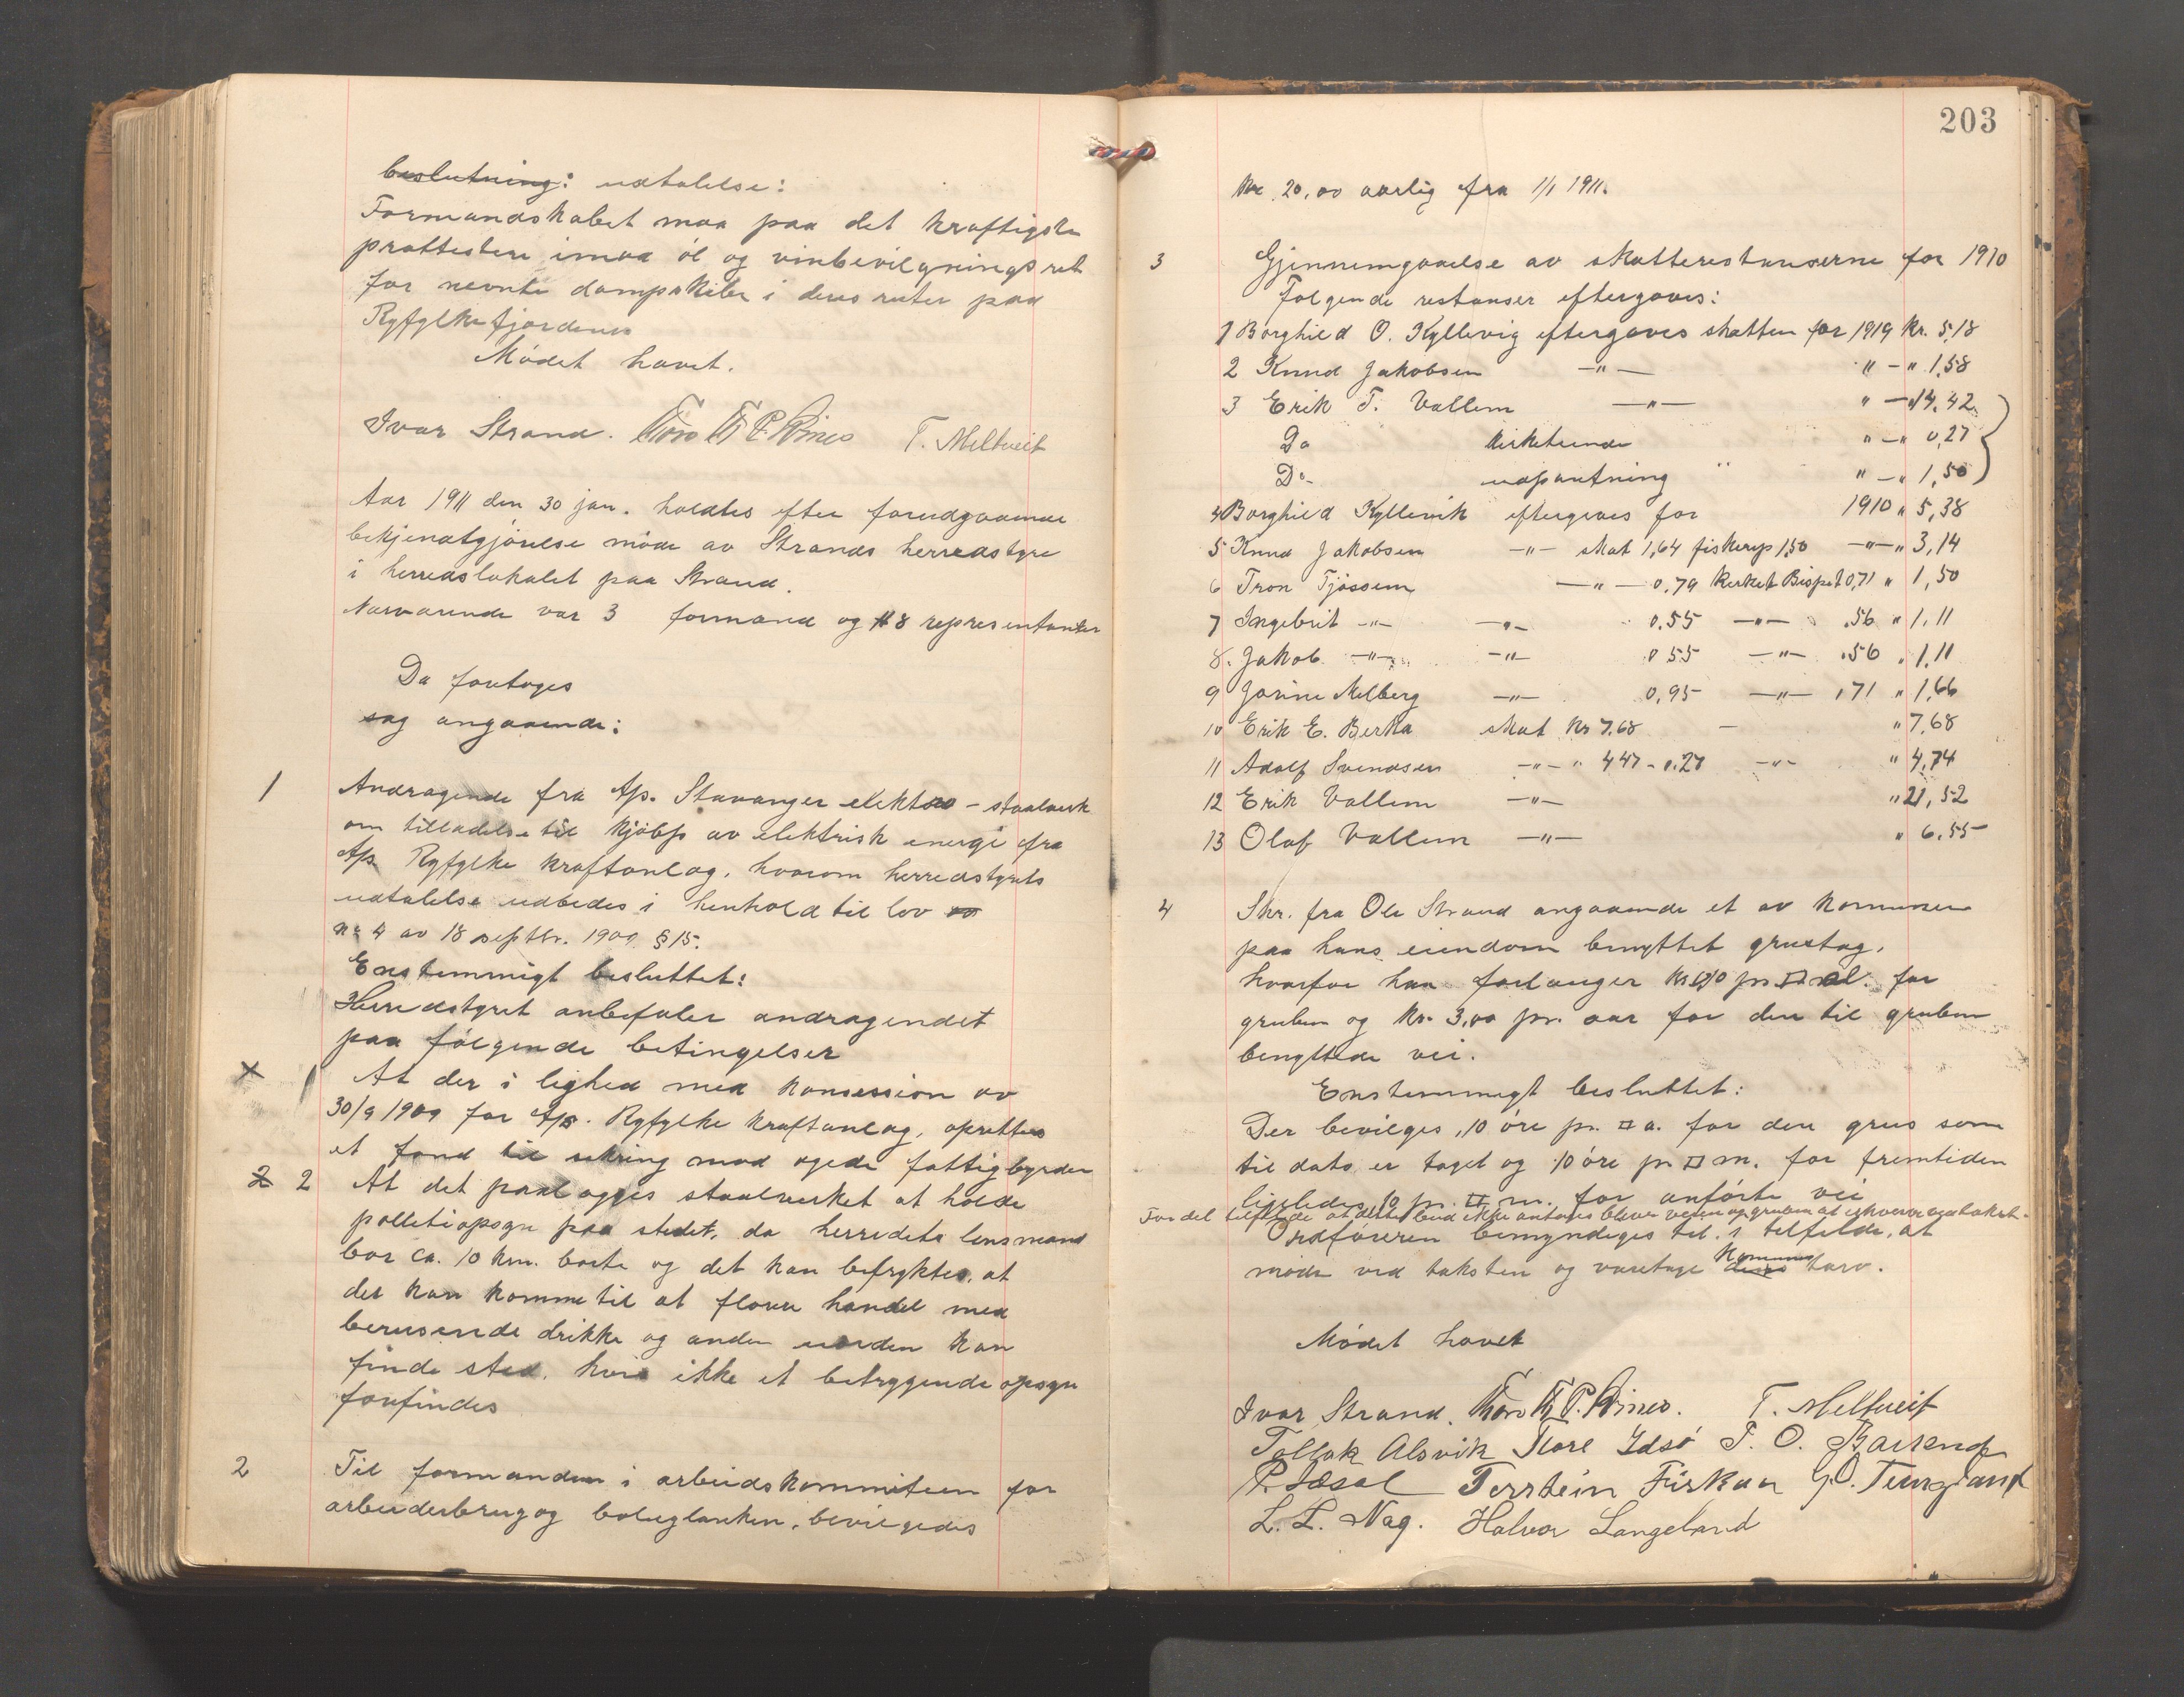 beslutning: udtalelse:
Formandskabet maa paa det kraftigste
prottestere imod öl og vinbevilgningsret
for nevnte dampskibe i deres ruter paa
Ryfylkefjordene
Mödet hævet.
Ivar Strand. T. Meltveit
Aar 1911 den 30 jan. holdtes efter forudgaaende
bekjendtgjörelse möde av Strands herredstyre
i herredslokalet paa Strand.
Nærværende var 3 formænd og 8 representanter
Da foretoges
sag angaaende:
1 Andragende fra A/s. Stavanger elektro-staalverk
om tilladelse til kjöb av elektrisk energi fra
A/s Ryfylke kraftanlæg, hvorom herredstyrets
udtalelse udbedes i henhold til lov
nr 4 av 18 septbr. 1909 § 15.
Enstemmigt besluttet:
Herredstyret anbefaler andragendet
paa fölgende betingelser
1 At der i lighed med konsession av
30/9 1909 for A/s. Ryfylke kraftanlæg, oprettes
et fond til sikring mod ögede fattigbyrder
2 2 At det paalægges staalverket at holde
polletiopsyn paa stedet, da herredets lensmand
bor ca. 10 km. borte og det kan befryktes, at
der kan komme til at florere handel med
berusende drikke og anden uorden kan
finde sted, hvis ikke et betryggende opsyn
forefindes
2 Til formanden i arbeidskommiteen for
arbeiderbrug og boliglaanken, bevilgedes
203
Kr. 20,00 aarlig fra 1/1 1911.
3 Gjennemgaaelse av skatterestanserne for 1910
Fölgende restanser eftergaves:
1 Borghild O. Kyllevig eftergaves skatten for 1919 Kr. 5,18
2 Knud Jakobsen -"- " - " 1,58
3 Erik T. Vallem -"- " - " 14,42
Do kirketiende " - " 0,27
Do udpantning " " - " 1,50
4 Borghild Kyllevik eftergives for 1910 " 5,38
5 Knud Jakobsen -"- skat 1,64 fiskerip 1,50 -"- " 3,14
6 Tron Tjössem -"- 0,79 Kirket Bispet 0,71 " 1,50
7 Ingebrit -"- -"- 0.55 -"- .56 " 1.11
8. Jakob -"- -"- 0 55 -"- .56 " 1,11
9 Jorine Melberg -"- 0,95 -"- ,71 " 1,66
10 Erik E. Berka skat Kr 7,68 - " 7,68
11 Adolf Svendsen -"- " 4 47 - 0.27 -"- " 4,74
12 Erik Vallem -"- " 21,52
13 Olaf Vallem -"- " 6.55
4 Skr. fra Ole Strand angaaende et av kommunen
paa hans eiendom benyttet grustag,
hvorfor han forlanger Kr 0,10 pr. □ al. for
gruben og Kr. 3,00 pr. aar for den til gruben
benyttede vei.
Enstemmigt besluttet:
Der bevilges ,10 öre pr. □ a. for den grus som
til dato er taget og 10 öre pr □ m. for fremtiden
ligeledes 10 pr. □ m. for anförte vei
For det tilfælde at dette bud ikke antages bliver veien og gruben at erhverve ved takst.
Ordföreren bemyndiges til i tilfelde, at
möde ved taksten og varetage deres kommunens tarv.
Mödet hævet
Ivar Strand. T. Meltveit
Tollak Alsvik Tore Idsö T. O. Barkend
Torstein Fiskaa G. O. Tungland
L. L. Nag. Halvor Langeland